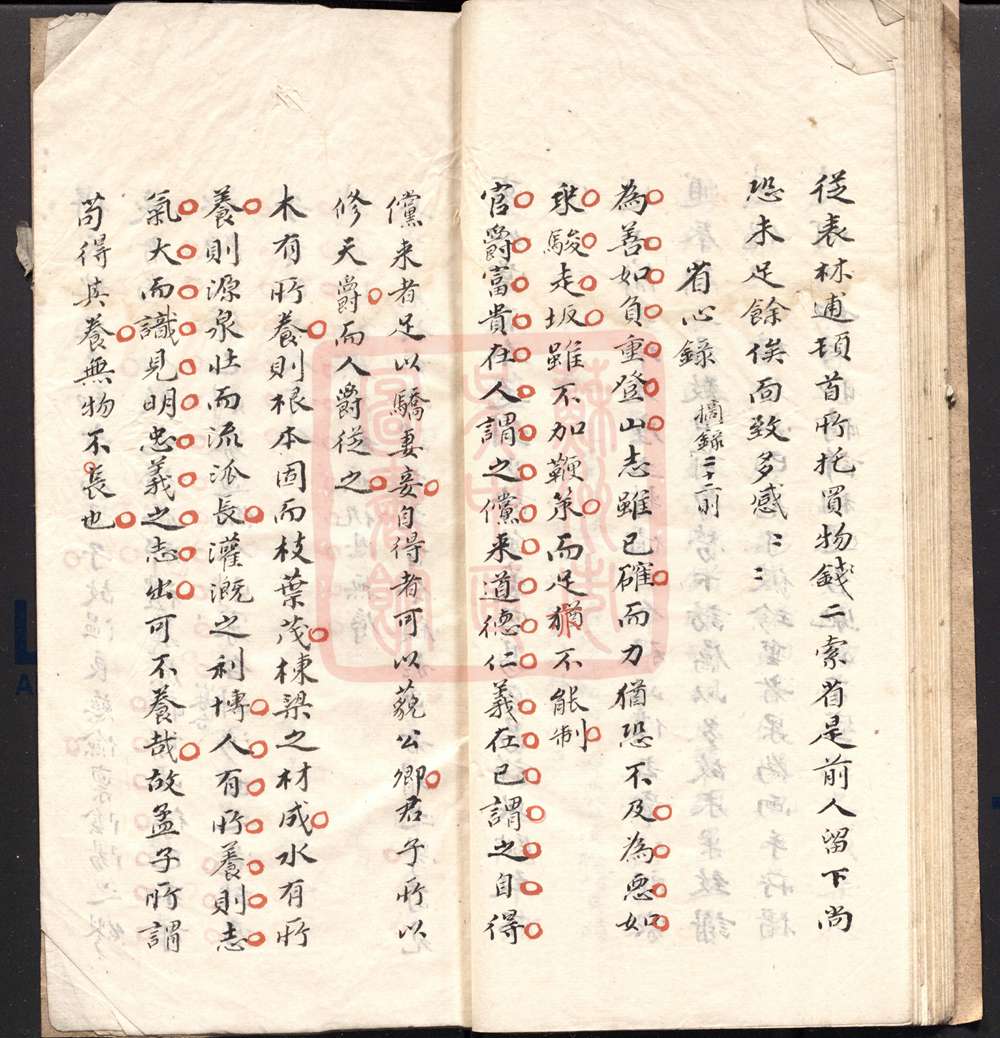 從表林逋頓首所托買物錢二索省是前人留下尚
恐未足餘俟面致多感〻〻
省心錄 摘錄二十二則
為善如負重登山志雖已確而力猶恐不及為惡如
乘駿走坂雖不加鞭策而足猶不能制
官爵富貴在人謂之儻來道德仁義在己謂之自得
儻来者足以驕妻妾自得者可以藐公卿君子所以
修天爵而人爵從之
木有所養則根本固而枝葉茂棟梁之材成水有所
養則源泉壮而流派長灌溉之利博人有所養則志
氣大而識見明忠義之志出可不養哉故孟子所謂
苟得其養無物不長也